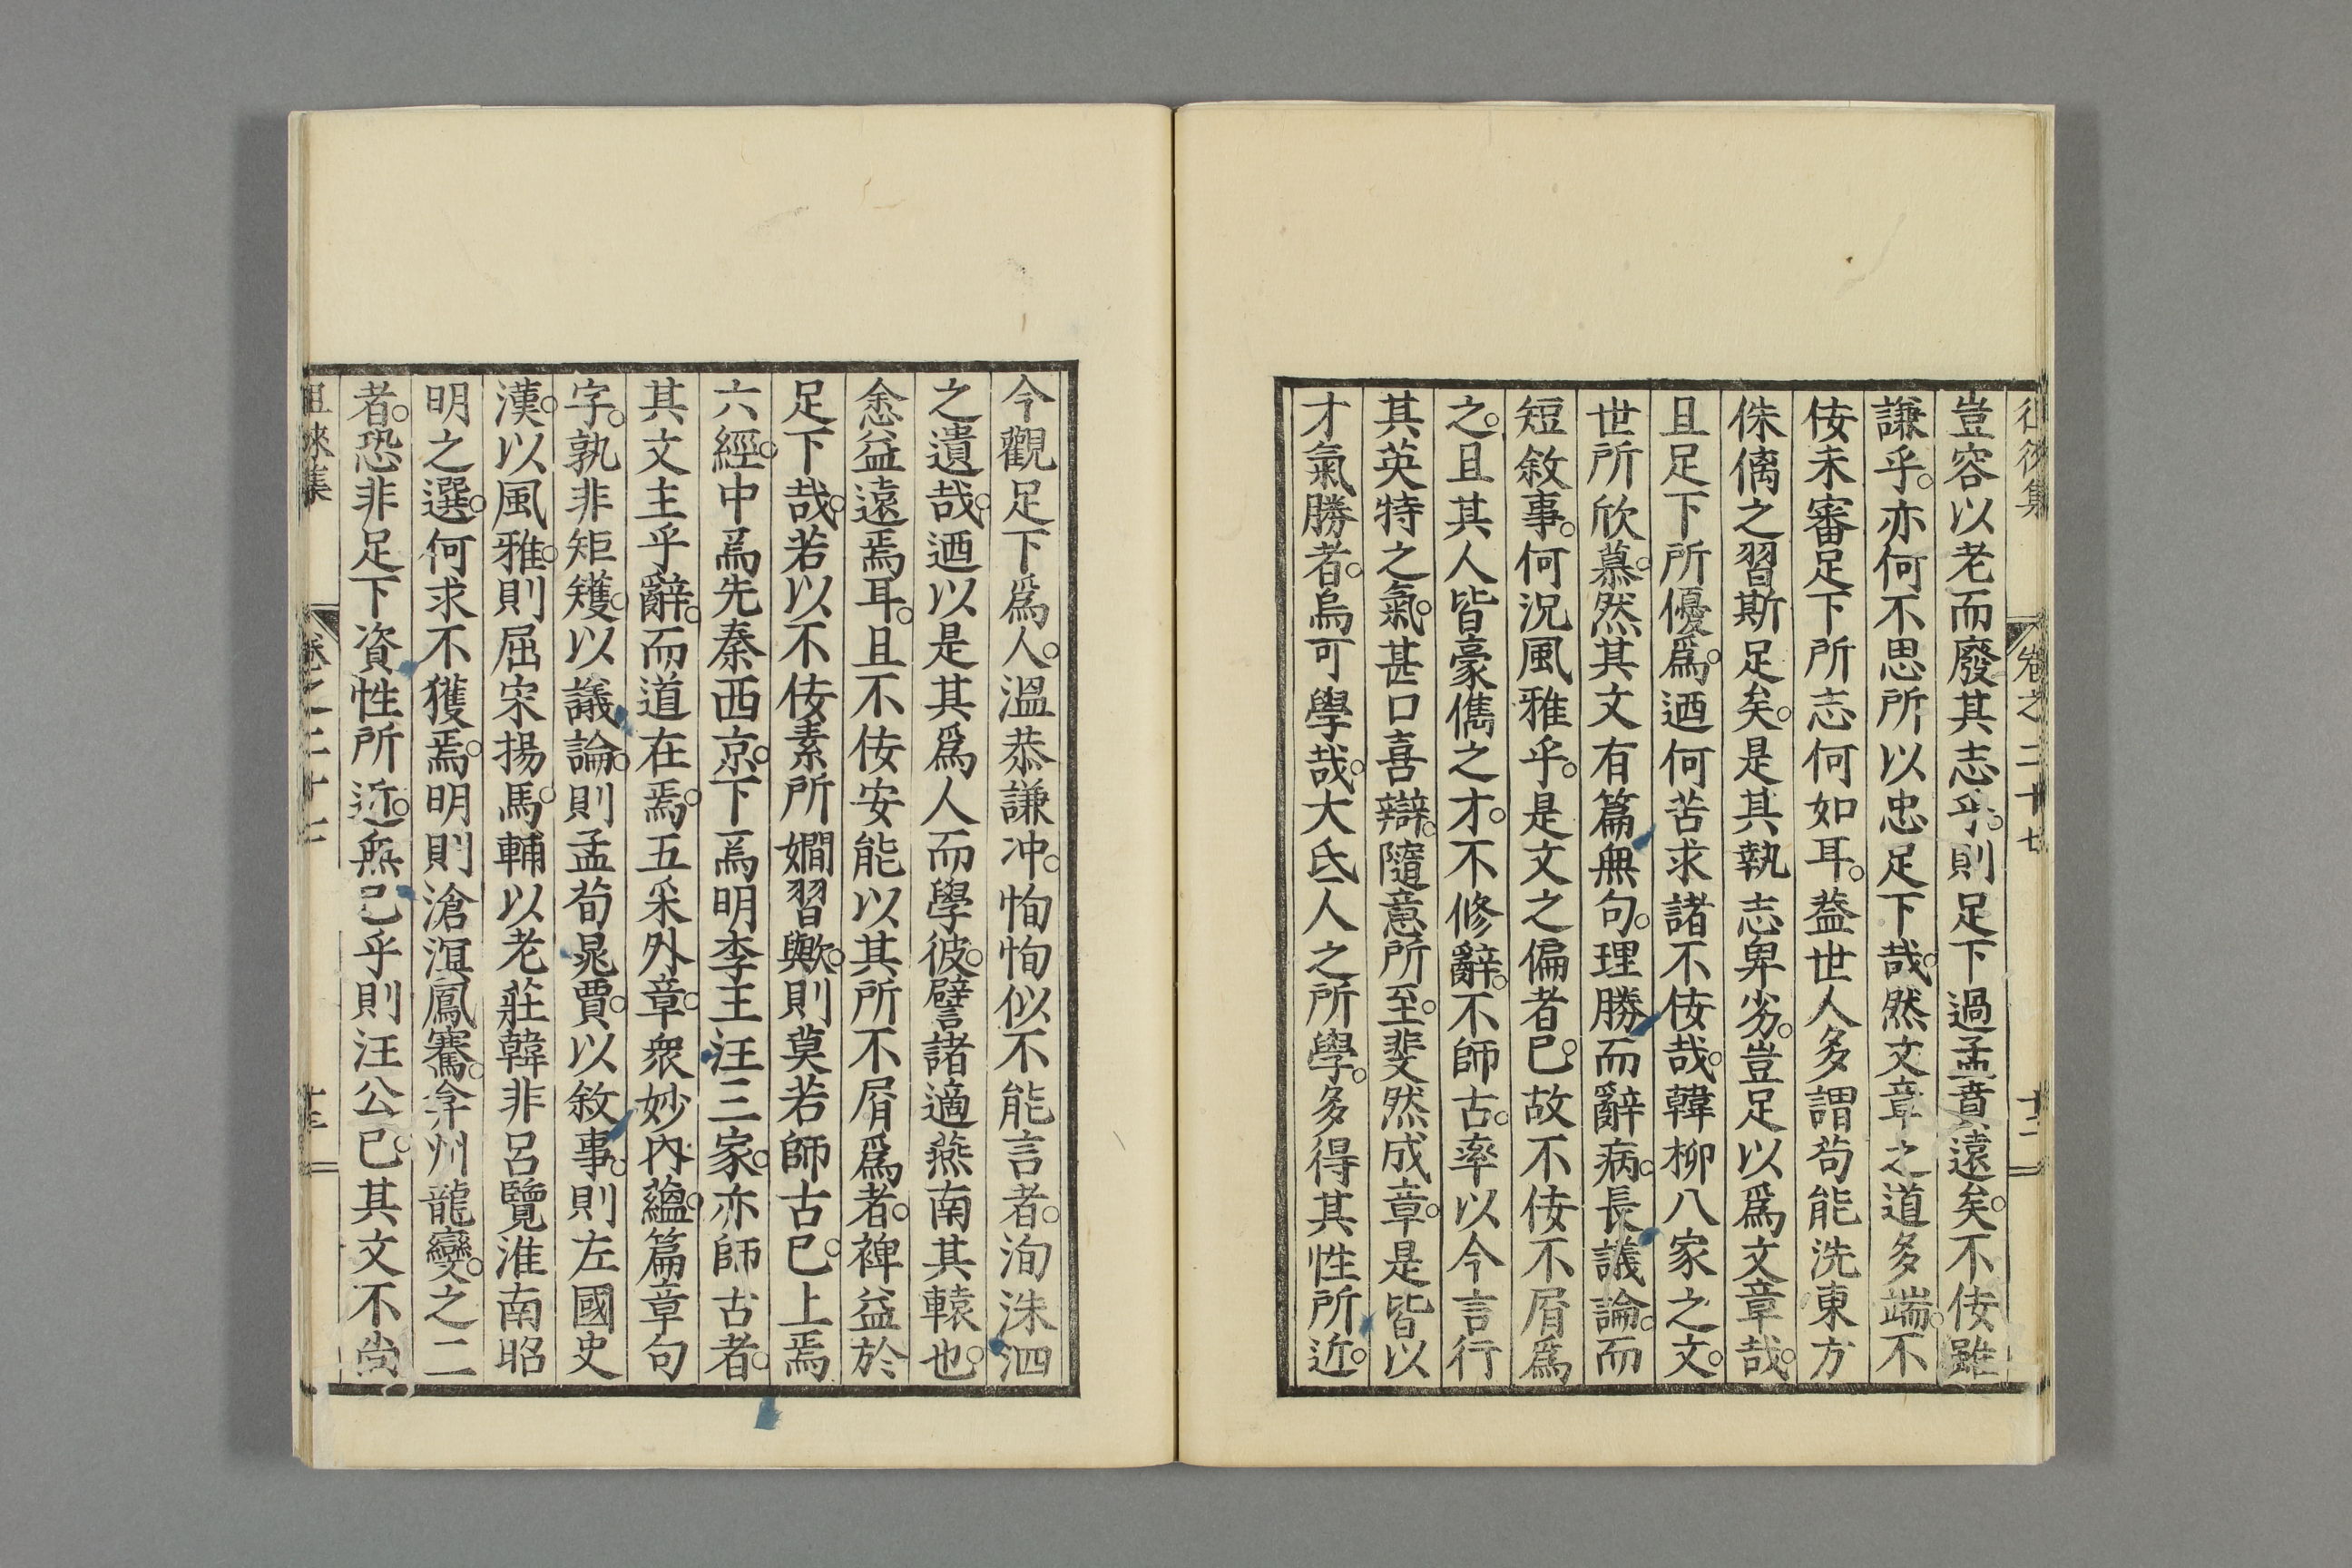 徂徠集 卷之二十七 十二
豈容以老而廢其志乎。則足下過孟賁遠矣。不佞雖
謙乎。亦何不思所以忠足下哉。然文章之道多端。不
佞未審足下所志何如耳。蓋世人多謂茍能洗東方
侏㒧之習斯足矣。是其執志卑劣。豈足以爲文章哉。
且足下所優爲。迺何苦求諸不佞哉。韓柳八家之文。
世所欣慕。然其文有篇無句。理勝而辭病。長議論。而
短敘事。何況風雅乎。是文之偏者已。故不佞不屑爲
之。且其人皆豪儁之才。不修辭。不師古。率以今言行
其英特之氣。甚口喜辯。隨意所至。斐然成章。是皆以
才氣勝者。烏可學哉。大氐人之所學。多得其性所近。
今觀足下爲人。溫恭謙冲。恂恂似不能言者。洵洙泗
之遺哉。迺以是其爲人而學彼。譬諸適燕南其轅也。
悆益遠焉耳。且不佞安能以其所不屑爲者。裨益於
足下哉。若以不佞素所嫺習歟。則莫若師古已。上焉
六經。中焉先秦西京。下焉明李王汪三家。亦師古者。
其文主乎辭。而道在焉。五采外章。衆妙內蘊。篇章句
字。孰非矩矱。以議論。則孟荀晁賈。以敘事。則左國史
漢。以風雅。則屈宋揚馬。輔以老莊韓非呂覽淮南昭
明之選。何求不獲焉。明則滄溟鳳騫。弇州龍變。之二
者。恐非足下資性所近。無已乎則汪公已。其文不尙
徂徠集 卷之二十七 十三